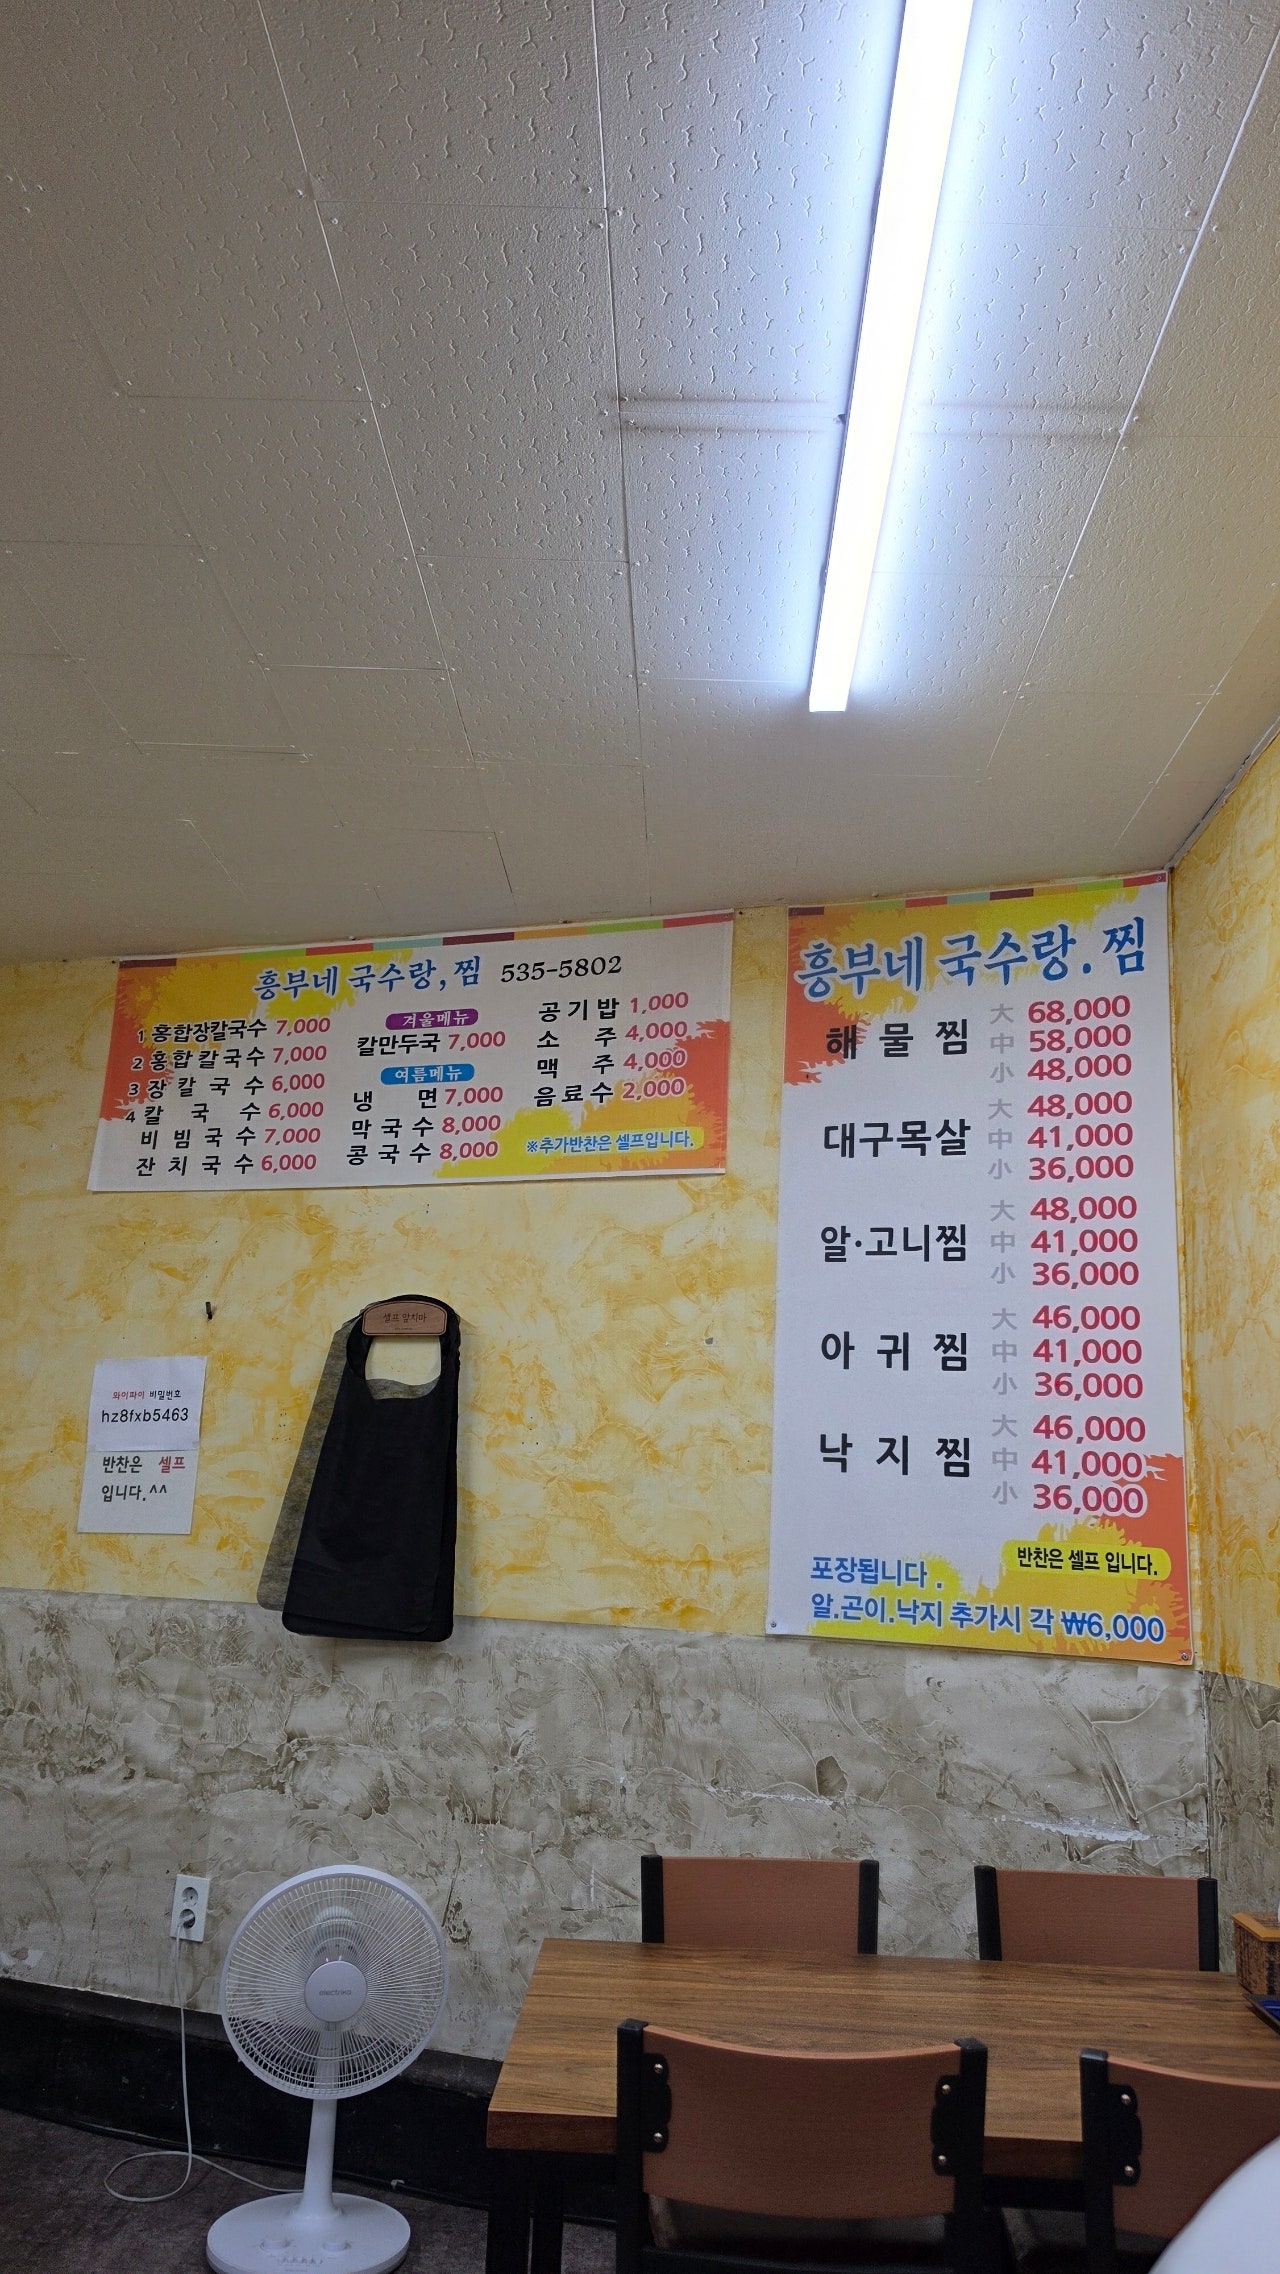 흥부네 국수랑, 찜 535-5802
1 홍합장칼국수 7,000
2 홍합칼국수 7,000
3 장칼국수 6,000
4 칼국수 6,000
비빔국수 7,000
잔치국수 6,000
겨울메뉴
칼만두국 7,000
여름메뉴
냉면 7,000
막국수 8,000
콩국수 8,000
공기밥 1,000
소주 4,000
맥주 4,000
음료수 2,000
※추가반찬은 셀프입니다.
흥부네 국수랑. 찜
해물찜 大 68,000
中 58,000
小 48,000
대구목살 大 48,000
中 41,000
小 36,000
알·고니찜 大 48,000
中 41,000
小 36,000
아귀찜 大 46,000
中 41,000
小 36,000
낙지찜 大 46,000
中 41,000
小 36,000
반찬은 셀프 입니다.
포장됩니다.
알.곤이.낙지 추가시 각 ₩6,000
셀프 앞치마
와이파이 비밀번호
hz8fxb5463
반찬은 셀프
입니다.^^